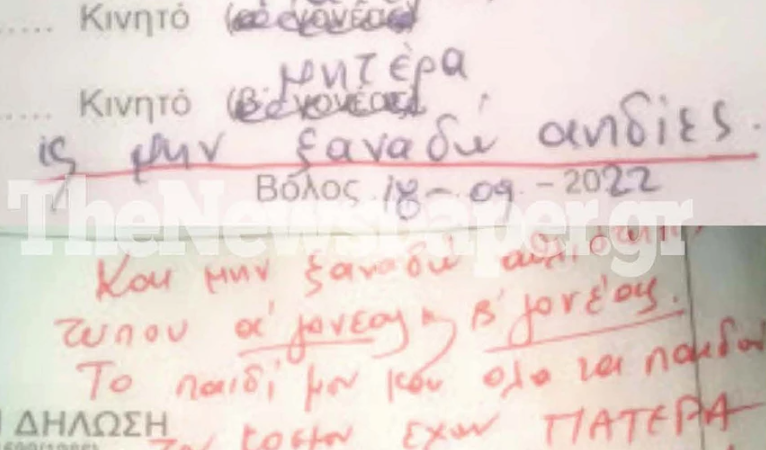 ..... Κινητό (α' γονέας)
μητέρα
..... Κινητό (β' γονέας)
μην ξαναδώ αηδίες.
Βόλος 18-09-2022
TheNewspaper.gr
Και μην ξαναδώ
τυπου α' γονέας κ β' γονέας.
Το παιδί μου και ολα τα παιδια
ΔΗΛΩΣΗ
εχουν ΠΑΤΕΡΑ